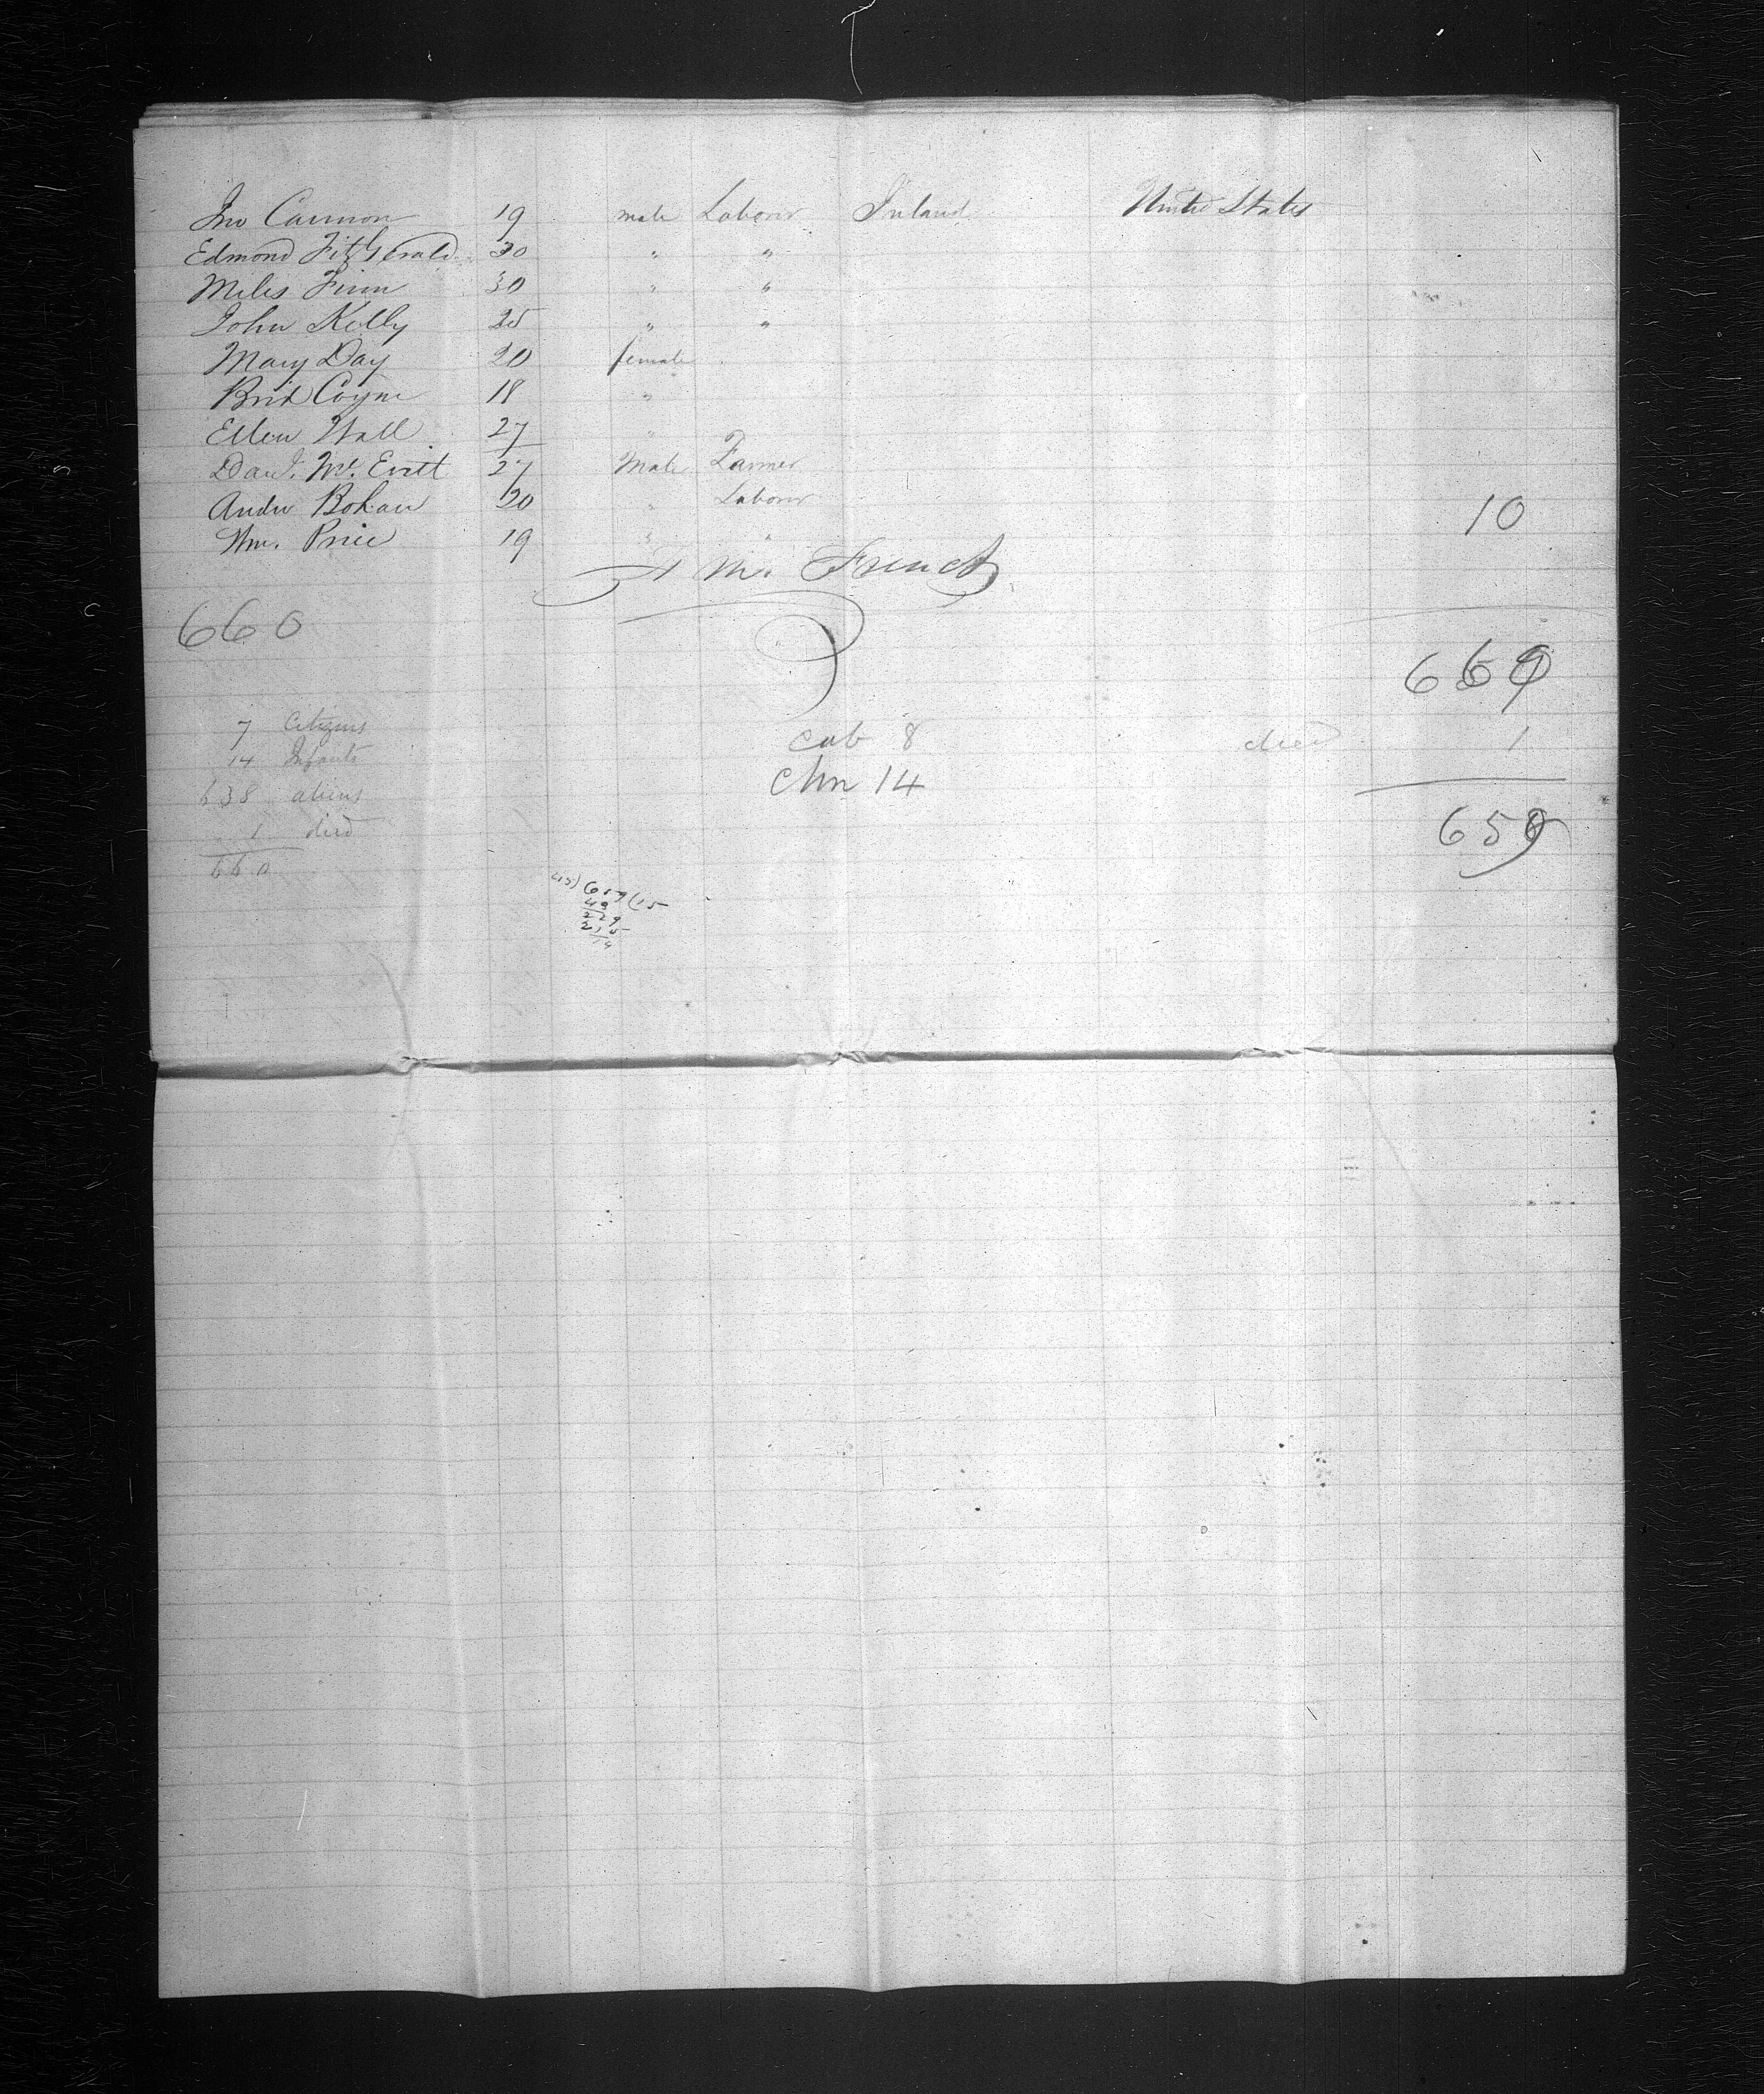 Jno Cannon 19 male Labour Ireland United States
Edmond FitzGerald 30 " "
Miles Finn 30 " "
John Kelly 25 " "
Mary Day 20 female
Brid Coyne 18 "
Ellen Wall 27 "
Danl. Mc. Evitt 27 Male Farmer
Andw Bohan 20 " Labour 10
Wm. Price 19 " "
French
660
660
7 Citizens cab 8 died 1
14 Infants chn 14
638 aliens 659
1 died
660